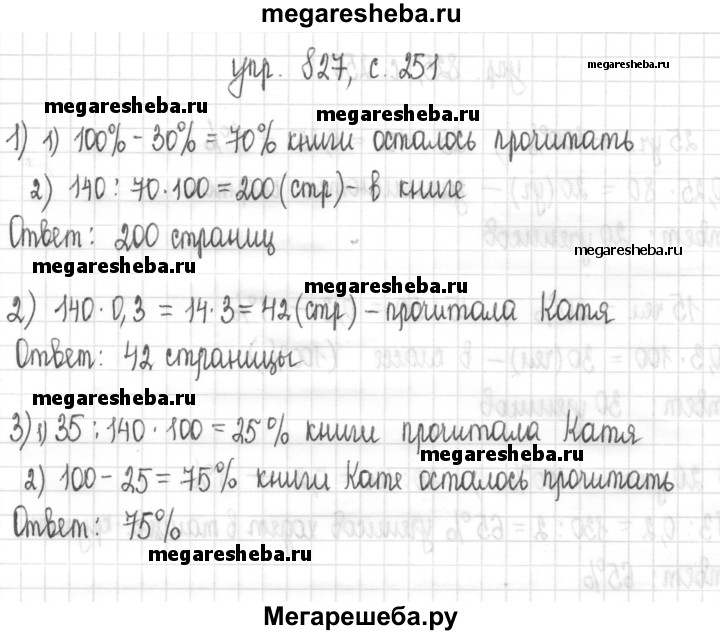 megaresheba.ru
упр. 827, с. 251
megaresheba.ru
megaresheba.ru
megaresheba.ru
1) 1) 100% - 30% = 70% книги осталось прочитать
2) 140 : 70 · 100 = 200 (стр) - в книге
Ответ: 200 страниц
megaresheba.ru
megaresheba.ru
megaresheba.ru
2) 140 · 0,3 = 14 · 3 = 42 (стр) - прочитала Катя
Ответ: 42 страницы
megaresheba.ru
3) 1) 35 : 140 · 100 = 25% книги прочитала Катя
megaresheba.ru
2) 100 - 25 = 75% книги Кате осталось прочитать
Ответ: 75%
megaresheba.ru
Мегарешеба.ру